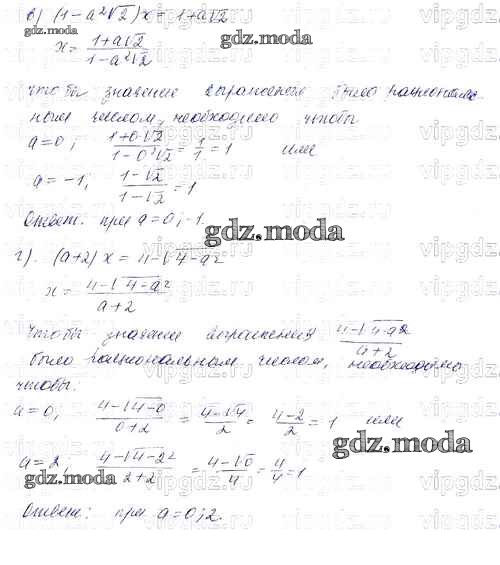 в) (1-a²√2)x = 1+a√2
x = (1+a√2)/(1-a²√2)
gdz.moda
чтобы значение выражения было рациональ-
ным числом, необходимо чтобы
a=0; (1+0·√2)/(1-0²√2) = 1/1 = 1 или
a=-1; (1-√2)/(1-√2) = 1
Ответ: при a=0;-1.
gdz.moda
г). (a+2)x = 4-√4-a²
x = (4-√4-a²)/(a+2)
gdz.moda
чтобы значение выражения (4-√4-a²)/(a+2)
было рациональным числом, необходимо
чтобы:
a=0; (4-√4-0)/(0+2) = (4-√4)/2 = (4-2)/2 = 1 или
gdz.moda
a=2, (4-√4-2²)/(2+2) = (4-√0)/4 = 4/4 = 1
gdz.moda
Ответ: при a=0;2.